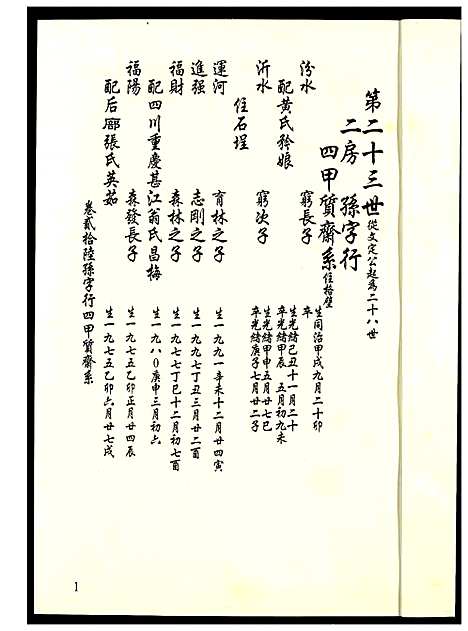 第二十三世 從文定公起為二十八世
二房 孫字行
四甲質齋系 住格壁
汾水 窮長子 生同治甲戌九月二十卯 卒
配黃氏矜娘 生光緒己丑十一月二十 卒光緒甲辰五月初九未
沂水 窮次子 生光緒甲申五月廿七巳 卒光緒庚子七月廿二子
住石埕
運河 育林之子 生一九九一辛未十二月廿四寅
進强 志剛之子 生一九九七丁丑三月廿二酉
福財 森林之子 生一九七七丁巳十二月初七酉
配四川重慶綦江翁氏昌梅 生一九八0庚申三月初六
福陽 森發長子 生一九七五乙卯正月廿四辰
配后廊張氏英茹 生一九七五乙卯六月廿七戌
卷貳拾陸孫字行四甲質齋系
1